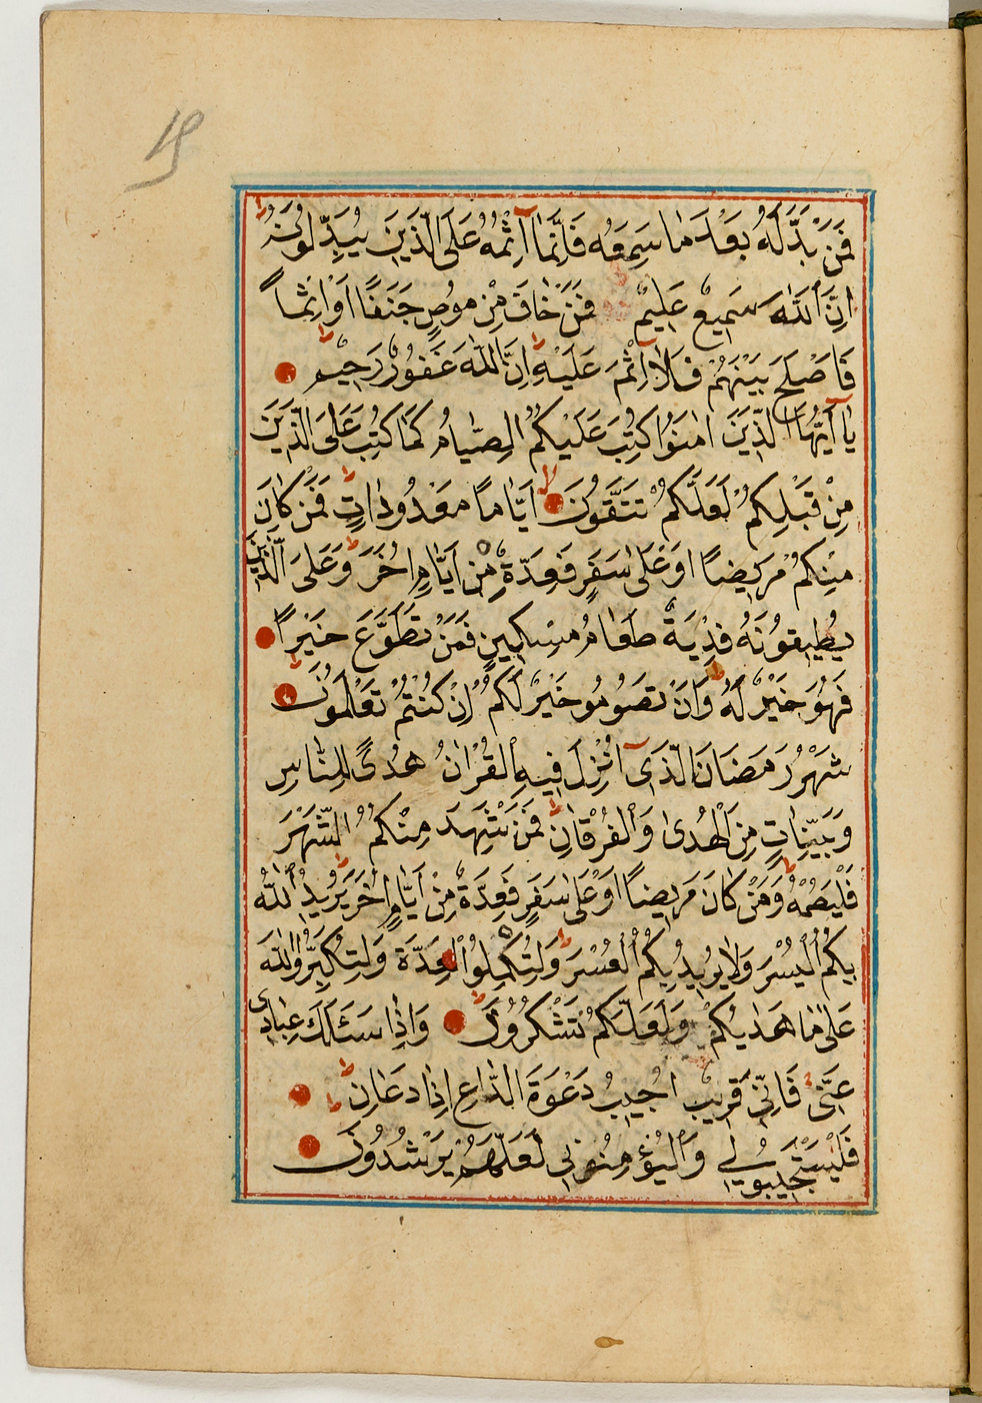 19
فَمَنْ بَدَّلَهُ بَعْدَ مَا سَمِعَهُ فَاِنَّمَا اِثْمُهُ عَلَى الَّذِينَ يُبَدِّلُونَهُ
اِنَّ اللّٰهَ سَمِيعٌ عَلِيمٌ فَمَنْ خَافَ مِنْ مُوصٍ جَنَفًا اَوْ اِثْمًا
فَاَصْلَحَ بَيْنَهُمْ فَلَا اِثْمَ عَلَيْهِ اِنَّ اللّٰهَ غَفُورٌ رَحِيمٌ
يَا اَيُّهَا الَّذِينَ اٰمَنُوا كُتِبَ عَلَيْكُمُ الصِّيَامُ كَمَا كُتِبَ عَلَى الَّذِينَ
مِنْ قَبْلِكُمْ لَعَلَّكُمْ تَتَّقُونَ اَيَّامًا مَعْدُودَاتٍ فَمَنْ كَانَ
مِنْكُمْ مَرِيضًا اَوْ عَلٰى سَفَرٍ فَعِدَّةٌ مِنْ اَيَّامٍ اُخَرَ وَعَلَى الَّذِينَ
يُطِيقُونَهُ فِدْيَةٌ طَعَامُ مِسْكِينٍ فَمَنْ تَطَوَّعَ خَيْرًا
فَهُوَ خَيْرٌ لَهُ وَاَنْ تَصُومُو خَيْرٌ لَكُمْ اِنْ كُنْتُمْ تَعْلَمُونَ
شَهْرُ رَمَضَانَ الَّذِى اُنْزِلَ فِيهِ الْقُرْاٰنُ هُدًى لِلنَّاسِ
وَبَيِّنَاتٍ مِنَ الْهُدٰى وَالْفُرْقَانِ فَمَنْ شَهِدَ مِنْكُمُ الشَّهْرَ
فَلْيَصُمْهُ وَمَنْ كَانَ مَرِيضًا اَوْ عَلٰى سَفَرٍ فَعِدَّةٌ مِنْ اَيَّامٍ اُخَرَ يُرِيدُ اللّٰهُ
بِكُمُ الْيُسْرَ وَلَا يُرِيدُ بِكُمُ الْعُسْرَ وَلِتُكْمِلُوا الْعِدَّةَ وَلِتُكَبِّرُوا اللّٰهَ
عَلٰى مَا هَدٰيكُمْ وَلَعَلَّكُمْ تَشْكُرُونَ وَاِذَا سَئَلَكَ عِبَادِى
عَنِّى فَاِنِّى قَرِيبٌ اُجِيبُ دَعْوَةَ الدَّاعِ اِذَا دَعَانِ
فَلْيَسْتَجِيبُولِى وَالْيُؤْمِنُوبِى لَعَلَّهُمْ يَرْشُدُونَ